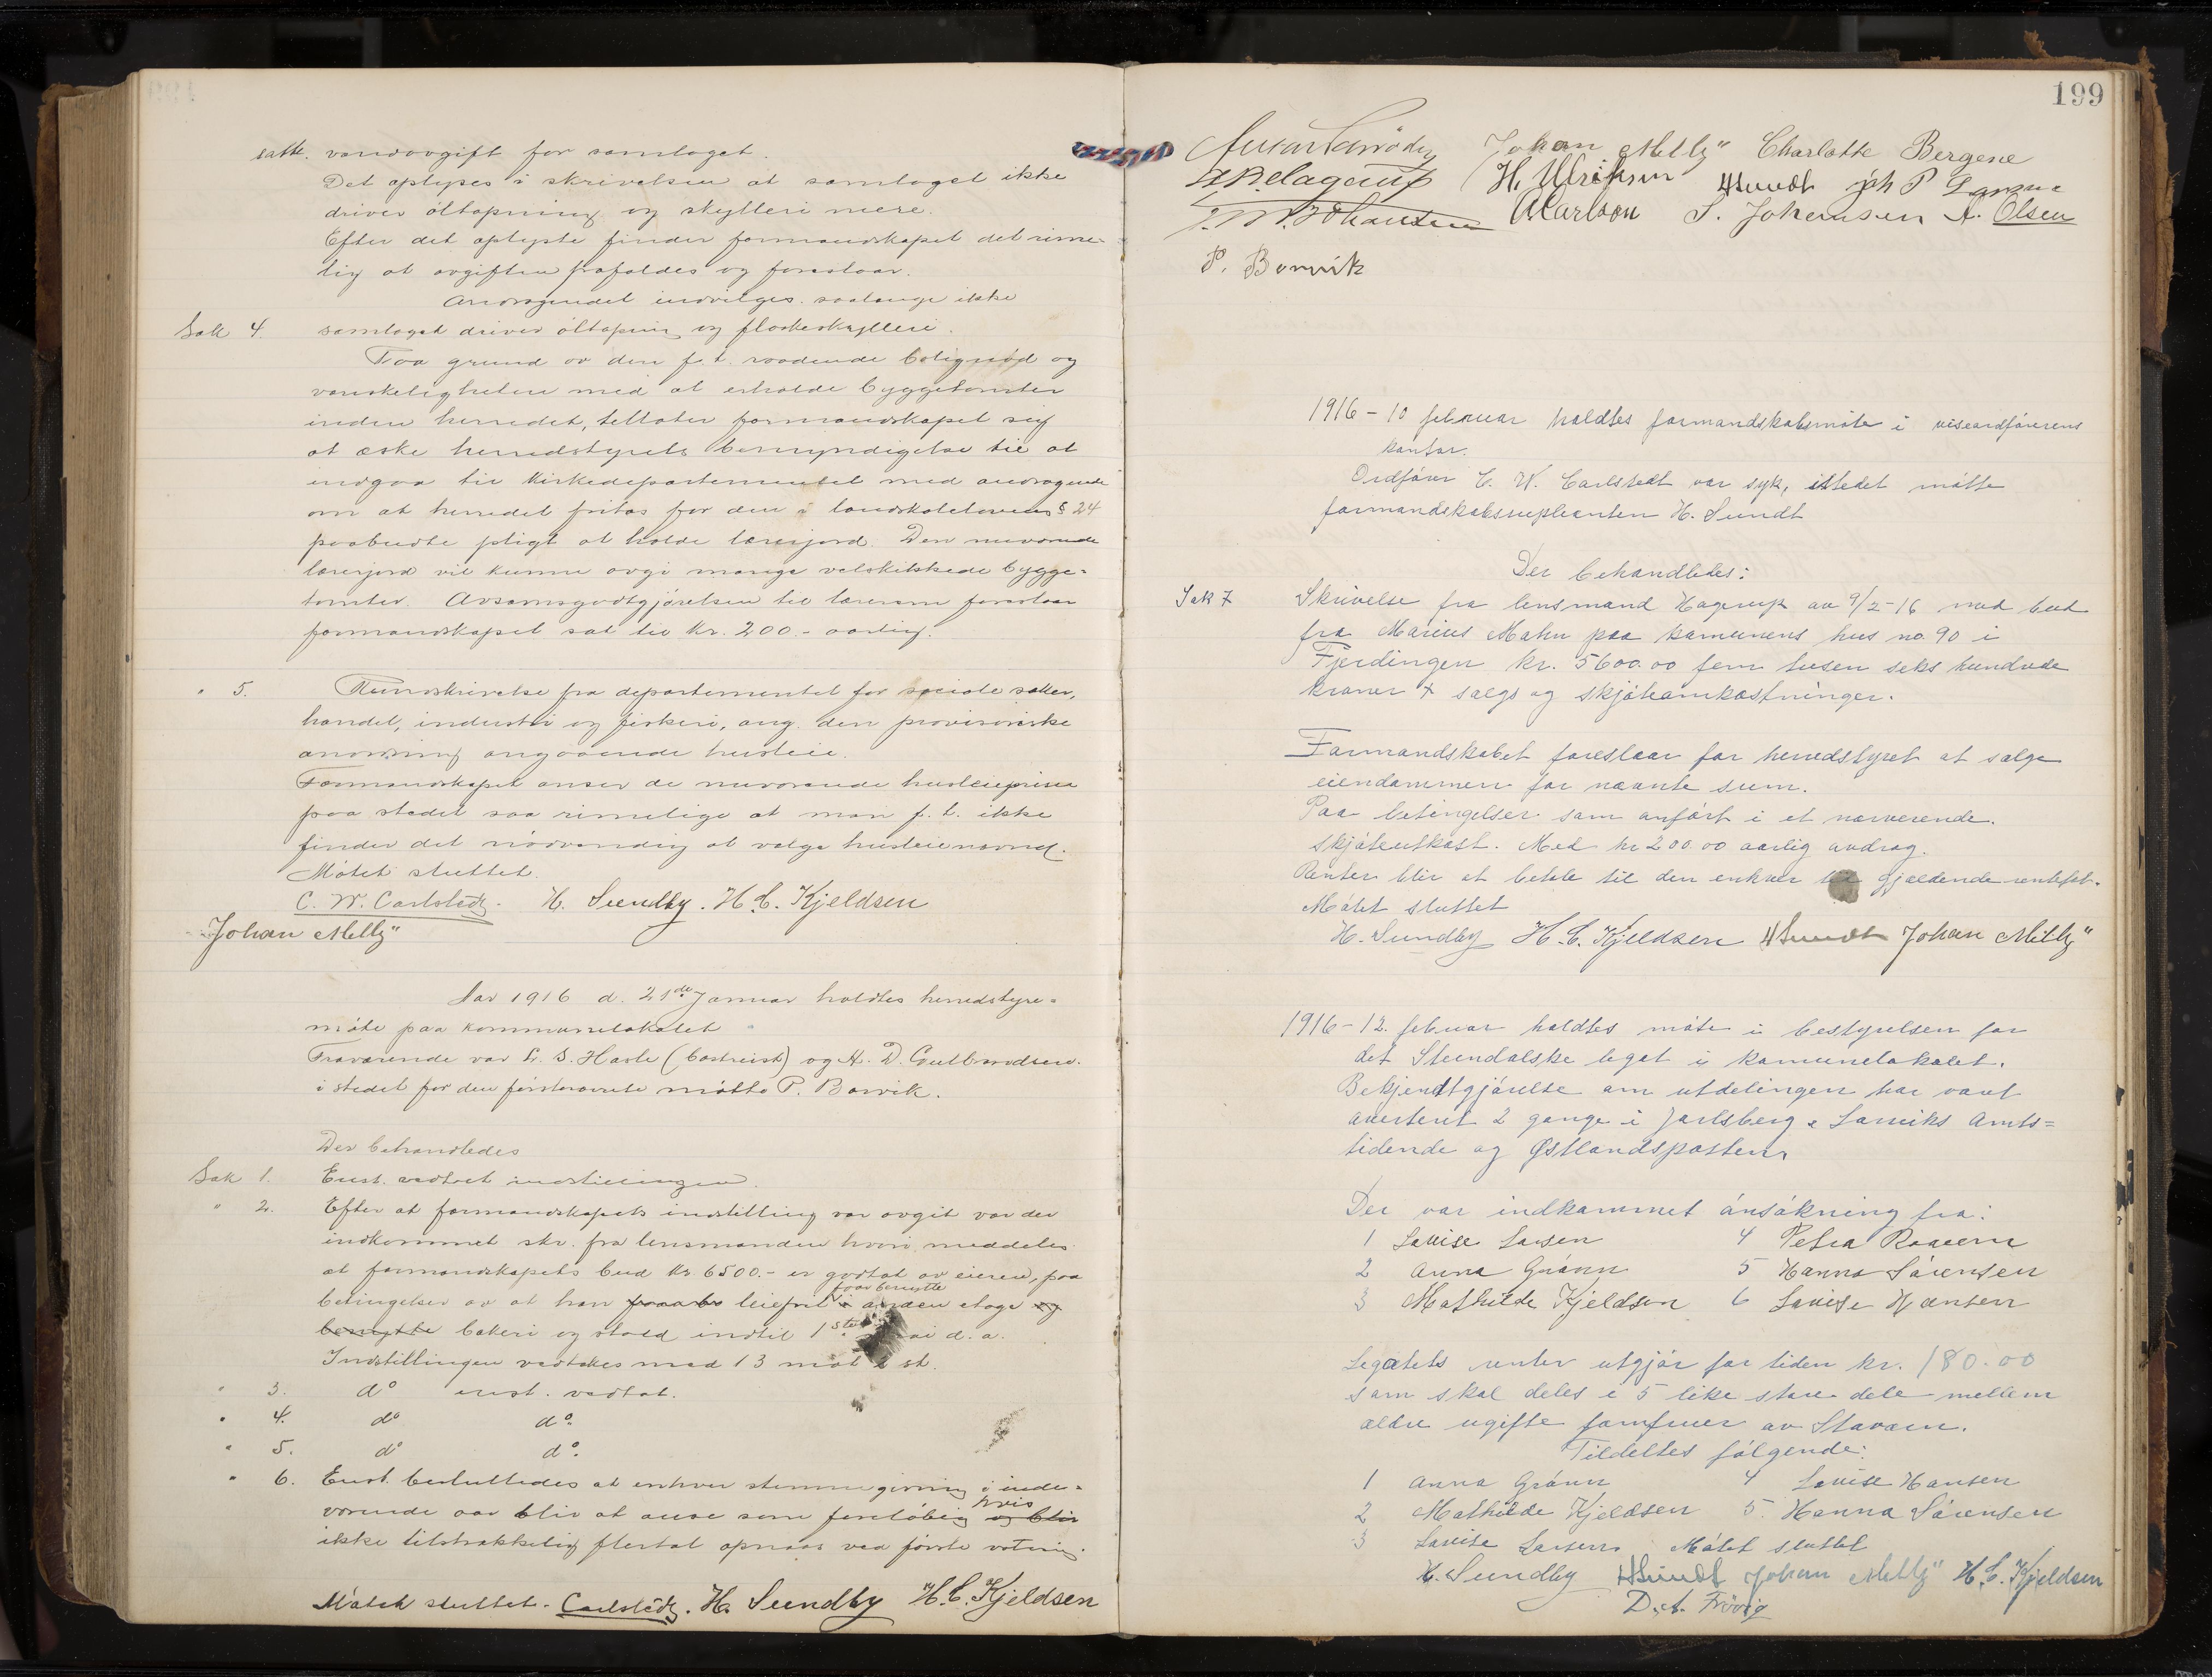 satte. vandavgift for samlaget.
Det oplyses i skrivelsen at samlaget ikke
driver öltapning og skylleri mere.
Efter det oplyste finder formandskapet det rime-
lig at avgiften frafaldes og foreslaar.
Andragendet indvilges saalænge ikke
Sak 4. samlaget driver öltapning og flaskeskylleri.
Paa grund av den f.t. raadende bolignöd og
vanskeligheten med at erholde byggetomter
inden herredet, tillater formandskapet sig
at æske herredstyrets bemyndigelse til at
indgaa til Kirkedepartementet med andragende
om at herredet fritas for den i landskolelovens § 24
paabudte pligt at holde lærerjord. Den nuværende
lærerjord vil kunne avgi mange velskikkede bygge-
tomter. Avsavnsgodtgjörelsen til lærerne foreslaar
formandskapet sat til Kr. 200.- aarlig.
" 5. Rundskrivelse fra departementet for sociale saker,
handel, industri og fiskeri, ang. den provisoriske
anordning angaaende husleie.
Formandskapet anser de nuværende husleiepriser
paa stedet saa rimelige at man f.t. ikke
finder det nödvendig at vælge husleienævnd.
Mötet sluttet.
C. W. Carlstedt. H. Sundby. H. C. Kjeldsen
Johan Melby
Aar 1916 d. 21de Januar holdtes herredstyre-
möte paa kommunelokalet
Fraværende var L. S. Hasle (bortreist) og A. D. Gulbrandsen.
i stedet for den förstnævnte mötte P. Borvik.
Der behandledes
Sak 1. Enst. vedtoct indstillingen.
" 2. Efter at formandskapets indstilling var avgit var der
indkommet skr. fra lensmanden hvori meddeles
at formandskapets bud kr. 6500.- er godtat av eieren, paa
betingelser av at han faar benytte leiefrit anden etage og
benytte bakeri og stald indtil 1ste mai d.a.
Indstillingen vedtokes med 13 mot 2 st.
" 3. do enst. vedtat.
" 4. do do.
" 5. do do.
" 6. Enst. besluttedes at enhver stemmegivning i inde-
værende aar blir at anse som foreløbig og blir hvis
ikke tilstrækkelig flertal opnaas ved förste votering.
Mötet sluttet. Carlstedt. H. Sundby H. C. Kjeldsen
199
Johan Melby Charlotte Bergene
H. Ulriksen HSundt Joh P
ACarlson S. Johansen A. Olsen
P. Borvik
1916 - 10 februar holdtes formandskabsmöte i viseordförerens
kontor.
Ordförer C. W. Carlstedt var syk, istedet mötte
formandskabssupleanten H. Sundt
Der behandledes:
Sak 7 Skrivelse fra lensmand Hagerup av 9/2-16 med bud
fra Marius Mahn paa komunens hus no. 90 i
Fjerdingen kr. 5600.00 fem tusen seks hundrede
kroner + salgs og skjöteomkostninger.
Formandskabet foreslaar for herredstyret at sælge
eiendommen for nævnte sum.
Paa betingelser som anfört i et nærverende
skjöteutkast. Med kr 200.00 aarlig avdrag.
Renter blir at betale til den enhver tid gjældende rentefot.
Mötet sluttet
H. Sundby H. C. Kjeldsen HSundt Johan Melby
1916 - 12. februar holdtes möte i bestyrelsen for
det Steendalske legat i komunelokalet.
Bekjendtgjörelse om utdelingen har vært
avertert 2 gange i Jarlsberg & Larviks Amts=
tidende og Østlandsposten.
Der var indkommet ansökning fra:
1 Lovise Larsen 4 Petra Raaern
2 Anna Grönn 5 Hanna Sörensen
3 Mathilde Kjeldsen 6 Lovise Hansen
Legatets renter utgjör for tiden kr. 180.00
som skal deles i 5 like store dele mellem
ældre ugifte jomfruer av Stavern.
Tildeltes fölgende:
1 Anna Grönn 4 Lovise Hansen
2 Mathilde Kjeldsen 5. Hanna Sörensen
3 Lovise Larsen. Mötet sluttet
H. Sundby HSundt Johan Melby H. C. Kjeldsen
D. A. Frövig